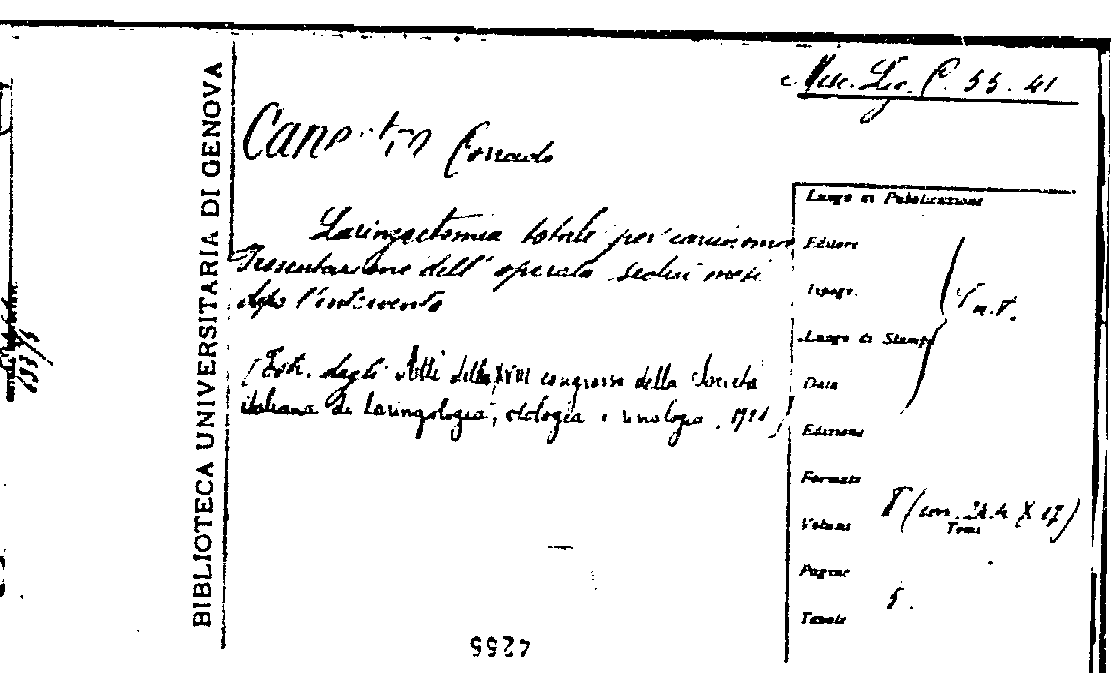 Misc. Lig. C. 55. 41
BIBLIOTECA UNIVERSITARIA DI GENOVA
Corrado
Laringectomia totale per carcinoma
Presentazione dell' operato sedici mesi
dopo l'intervento
(Estr. dagli Atti della XVIII congresso della Società
italiana di laringologia, otologia e rinologia.
Luogo di Pubblicazione
Editore
Tipogr.
Luogo di Stampa
Data
Edizione
Formato
Volumi
Tomi
Pagine
5.
Tavole
4255